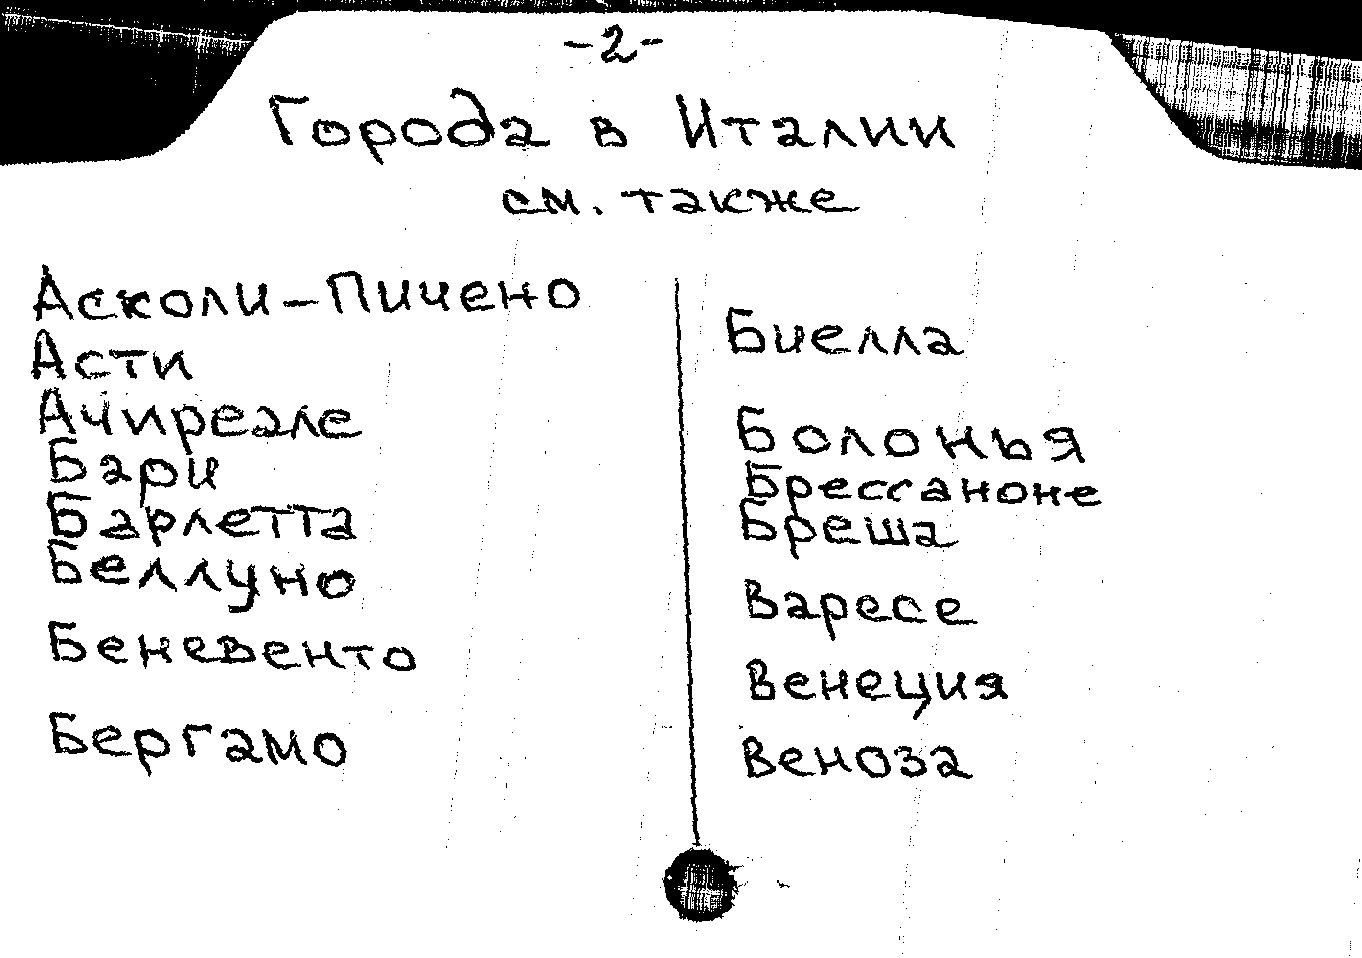 -2-
Города в Италии
см. также
Асколи-Пичено
Асти
Ачиреале
Бари
Барлетта
Беллуно
Беневенто
Бергамо
Биелла
Болонья
Брессаноне
Бреша
Варесе
Венеция
Веноза